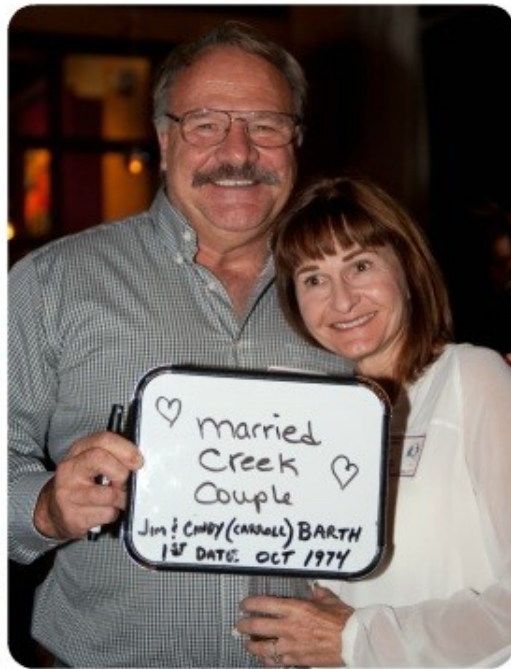 married
Creek
Couple
Jim & CINDY (CARROLL) BARTH
1ST DATE: OCT 1974